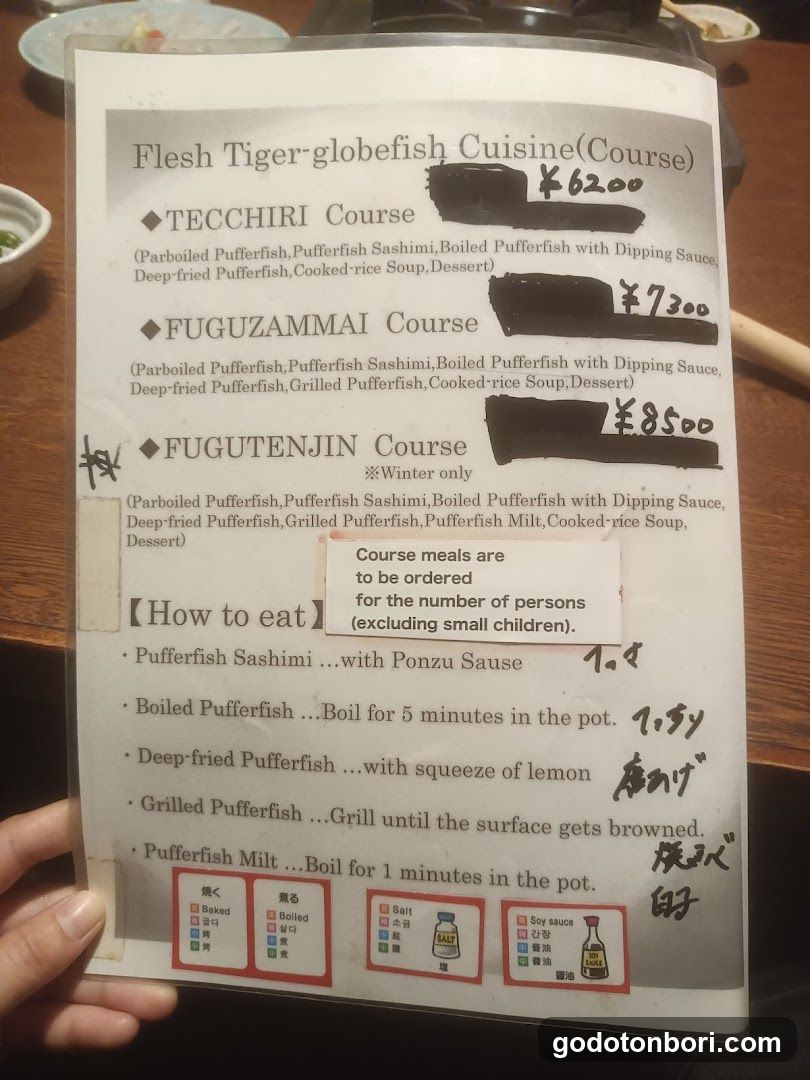 Flesh Tiger-globefish Cuisine(Course)
¥6200
◆TECCHIRI Course
(Parboiled Pufferfish,Pufferfish Sashimi,Boiled Pufferfish with Dipping Sauce,
Deep-fried Pufferfish,Cooked-rice Soup,Dessert)
¥7300
◆FUGUZAMMAI Course
(Parboiled Pufferfish,Pufferfish Sashimi,Boiled Pufferfish with Dipping Sauce,
Deep-fried Pufferfish,Grilled Pufferfish,Cooked-rice Soup,Dessert)
¥8500
◆FUGUTENJIN Course
※Winter only
(Parboiled Pufferfish,Pufferfish Sashimi,Boiled Pufferfish with Dipping Sauce,
Deep-fried Pufferfish,Grilled Pufferfish,Pufferfish Milt,Cooked-rice Soup,
Dessert)
Course meals are
to be ordered
for the number of persons
(excluding small children).
【How to eat】
・Pufferfish Sashimi …with Ponzu Sause てっさ
・Boiled Pufferfish …Boil for 5 minutes in the pot. てっちり
・Deep-fried Pufferfish …with squeeze of lemon 唐あげ
・Grilled Pufferfish …Grill until the surface gets browned.
・Pufferfish Milt …Boil for 1 minutes in the pot.
白子
焼く
Baked
굽다
烤
烤
煮る
Boiled
삶다
煮
煮
Salt
소금
盐
鹽
SALT
塩
Soy sauce
간장
酱油
醬油
SOY
SAUCE
醤油
godotonbori.com